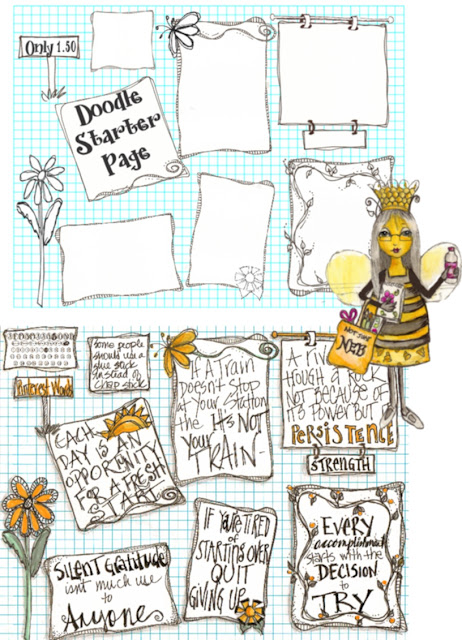 Only 1.50
Doodle
Starter
Page
Pinterest Words
Some people
should use a
glue stick
instead of
chap stick
If A Train
Doesn't Stop
at Your Station
the It's NOT
Your
TRAIN-
A riv
HOUGH A ROCK
NOT BECAUSE OF
IT'S POWER BUT
PERSISTENCE
STRENGTH
EACH
DAY IS AN
OPPORTUNITY
FOR A FRESH
START
SILENT Gratitude
isn't much use
to
Anyone
IF YOU'RE TIRED
of
STARTING OVER
QUIT
GIVING UP
EVERY
accomplishment
starts with the
DECISION
to
TRY